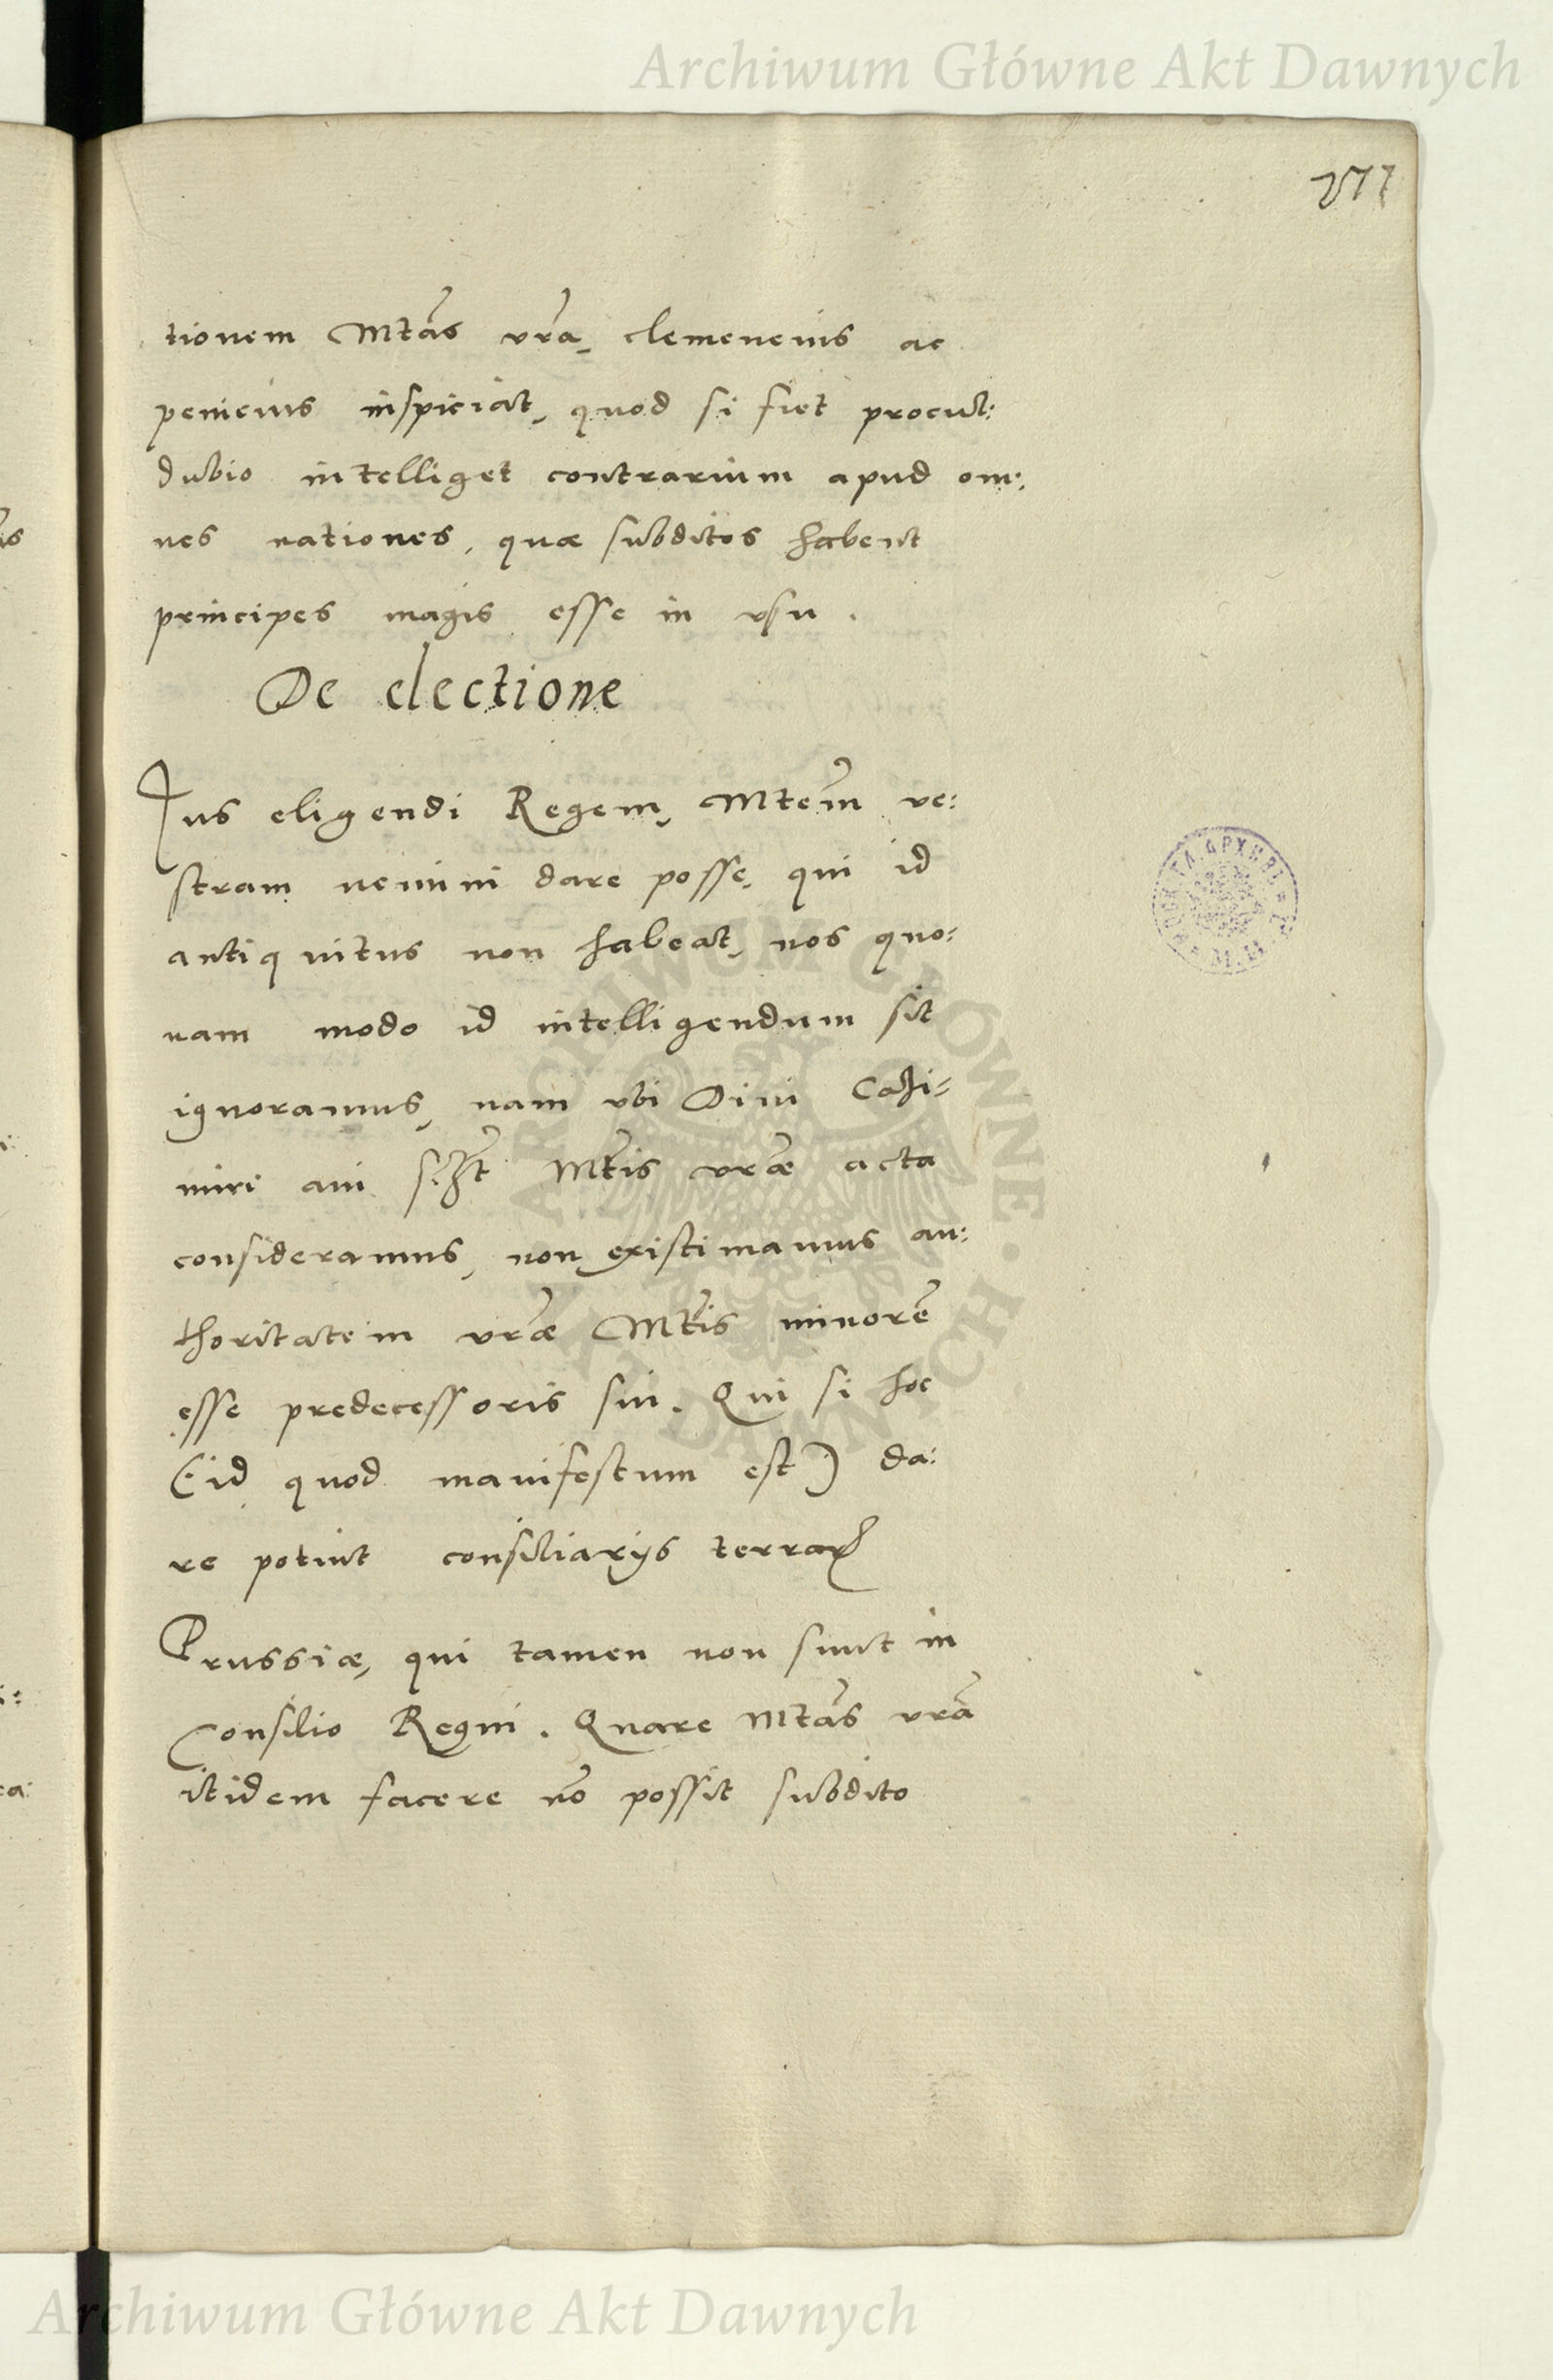 Archiwum Główne Akt Dawnych
tionem Mtãs vrã, clemencius ac
penicius inspiciat, quod si fiet procul:
dubio intelliget contrarium apud om:
nes nationes, quæ subditos habent
principes magis esse in vsu.
De electione
Ius eligendi Regem, Mtem̃ ve:
stram nemini dare posse, qui id
antiquitus non habeat, nos quo:
nam modo id intelligendum sit
ignoramus, nam vbi Diui Cazi=
miri aui Mtĩs vræ̃ acta
consideramus, non existimamus au:
thoritatem vræ̃ Mtĩs minorẽ
esse predecessoris sui. Qui si hoc
(id quod manifestum est) da:
re potuit consiliarijs terrarꝝ
Prussiæ, qui tamen non sunt in
Consilio Regni. Quare Mtãs vrã
itidem facere nõ possit subdito
ARCHIWUM GŁÓWNE AKT DAWNYCH
Archiwum Główne Akt Dawnych